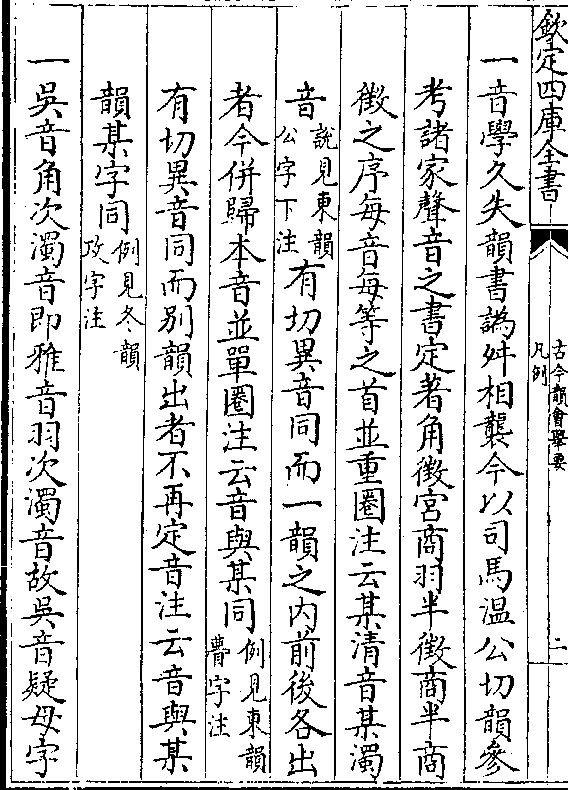 欽定四庫全書
古今韻會舉要
凡例
二
一音學久失韻書譌舛相襲今以司馬温公切韻參
考諸家聲音之書定著角徵宮商羽半徵商半商
徵之序每音每等之首並重圈注云某清音某濁
音
說見東韻
公字下注
有切異音同而一韻之内前後各出
者今併歸本音並單圈注云音與某同
例見東韻
瞢字注
有切異音同而别韻出者不再定音注云音與某
韻某字同
例見冬韻
攻字注
一吳音角次濁音即雅音羽次濁音故吳音疑母字